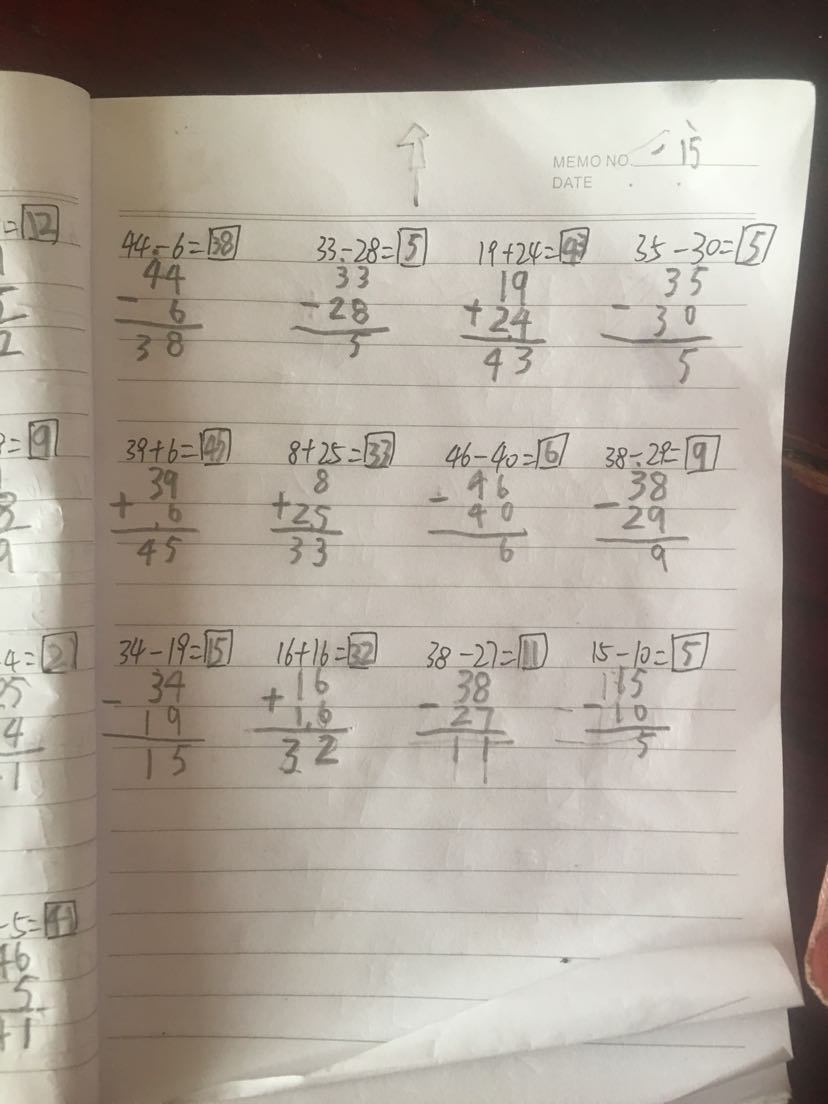 MEMO NO. 15
DATE . .
44-6=38 33-28=5 19+24=43 35-30=5
44 33 19 35
- 6 -28 +24 -30
38 5 43 5
39+6=45 8+25=33 46-40=6 38-29=9
39 8 46 38
+ 6 +25 -40 -29
45 33 6 9
34-19=15 16+16=32 38-27=11 15-10=5
34 16 38 15
-19 +16 -27 -10
15 32 11 5
=12
2
=9
9
4=21
25
4
1
-5=41
46
5
41